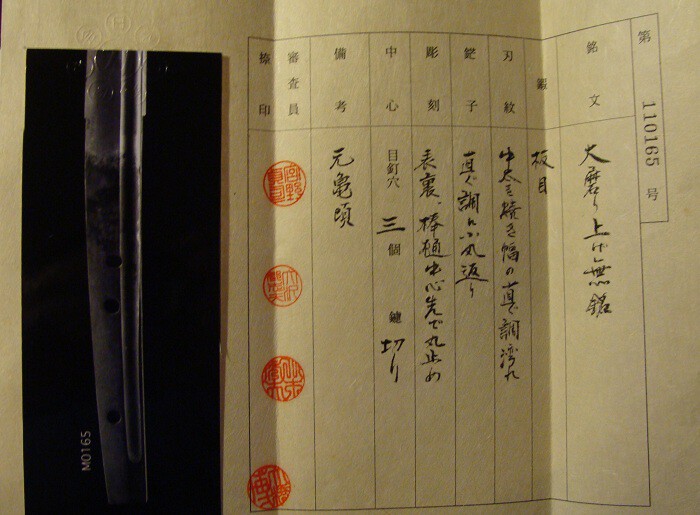 第 110165 号
銘文 大磨り上げ無銘
鍛 板目
刃紋 中太き焼き幅の直ぐ調湾れ
鋩子 直ぐ調に小丸返り
彫刻 表裏、棒樋中心先で丸止め
中心 目釘穴 三 個 鑢 切り
備考 元亀頃
審査員
捺印
M0165